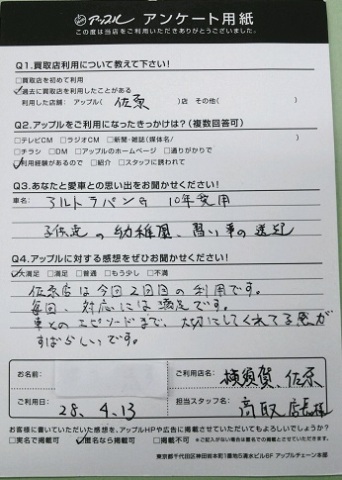 アップル アンケート用紙
この度は当店をご利用いただきありがとうございました。
Q1.買取店利用について教えて下さい!
□買取店を初めて利用
☑過去に買取店を利用したことがある
利用した店舗: アップル( 佐原 )店 その他( )
Q2.アップルをご利用になったきっかけは?(複数回答可)
□テレビCM □ラジオCM □新聞・雑誌(媒体名/ )
□チラシ □DM □アップルのホームページ □通りがかりで
☑利用経験があるので □紹介 □スタッフに誘われて
Q3.あなたと愛車との思い出をお聞かせください!
車名: アルトラパンG 10年愛用
子供達の幼稚園、習い事の送迎
Q4.アップルに対する感想をぜひお聞かせください!
☑大満足 □満足 □普通 □もう少し □不満
佐原店は今回2回目の利用です。
毎回、対応には満足です。
車とのエピソードまで、大切にしてくれてる感が
すばらしいです。
お名前: ご利用店名: 横須賀、佐原
ご利用日: 28. 4. 13 担当スタッフ名: 高取店長様
お客様に書いていただいた感想を、アップルHPや広告に掲載させていただいてもよろしいでしょうか?
□実名で掲載可 ☑匿名なら掲載可 □掲載不可 ※ご記入がない場合は匿名での掲載とさせていただきます。
東京都千代田区神田相生町1番地5清水ビル6F アップルチェーン本部